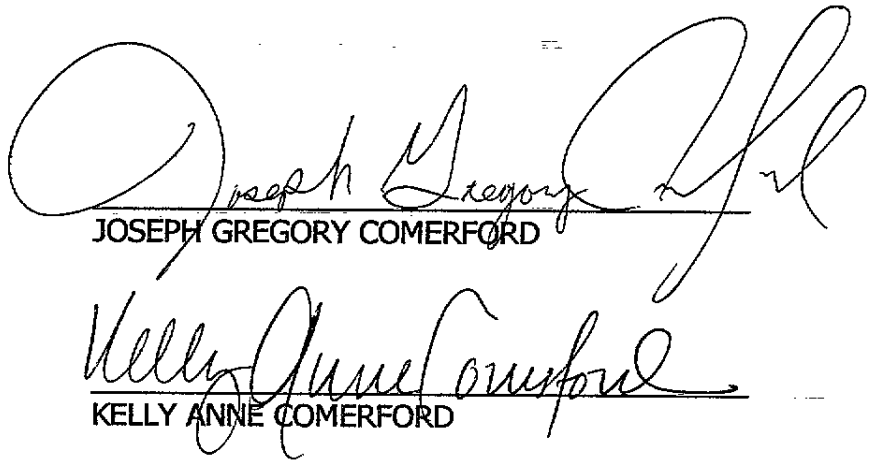 Joseph Gregory Comerford
JOSEPH GREGORY COMERFORD
Kelly Anne Comerford
KELLY ANNE COMERFORD